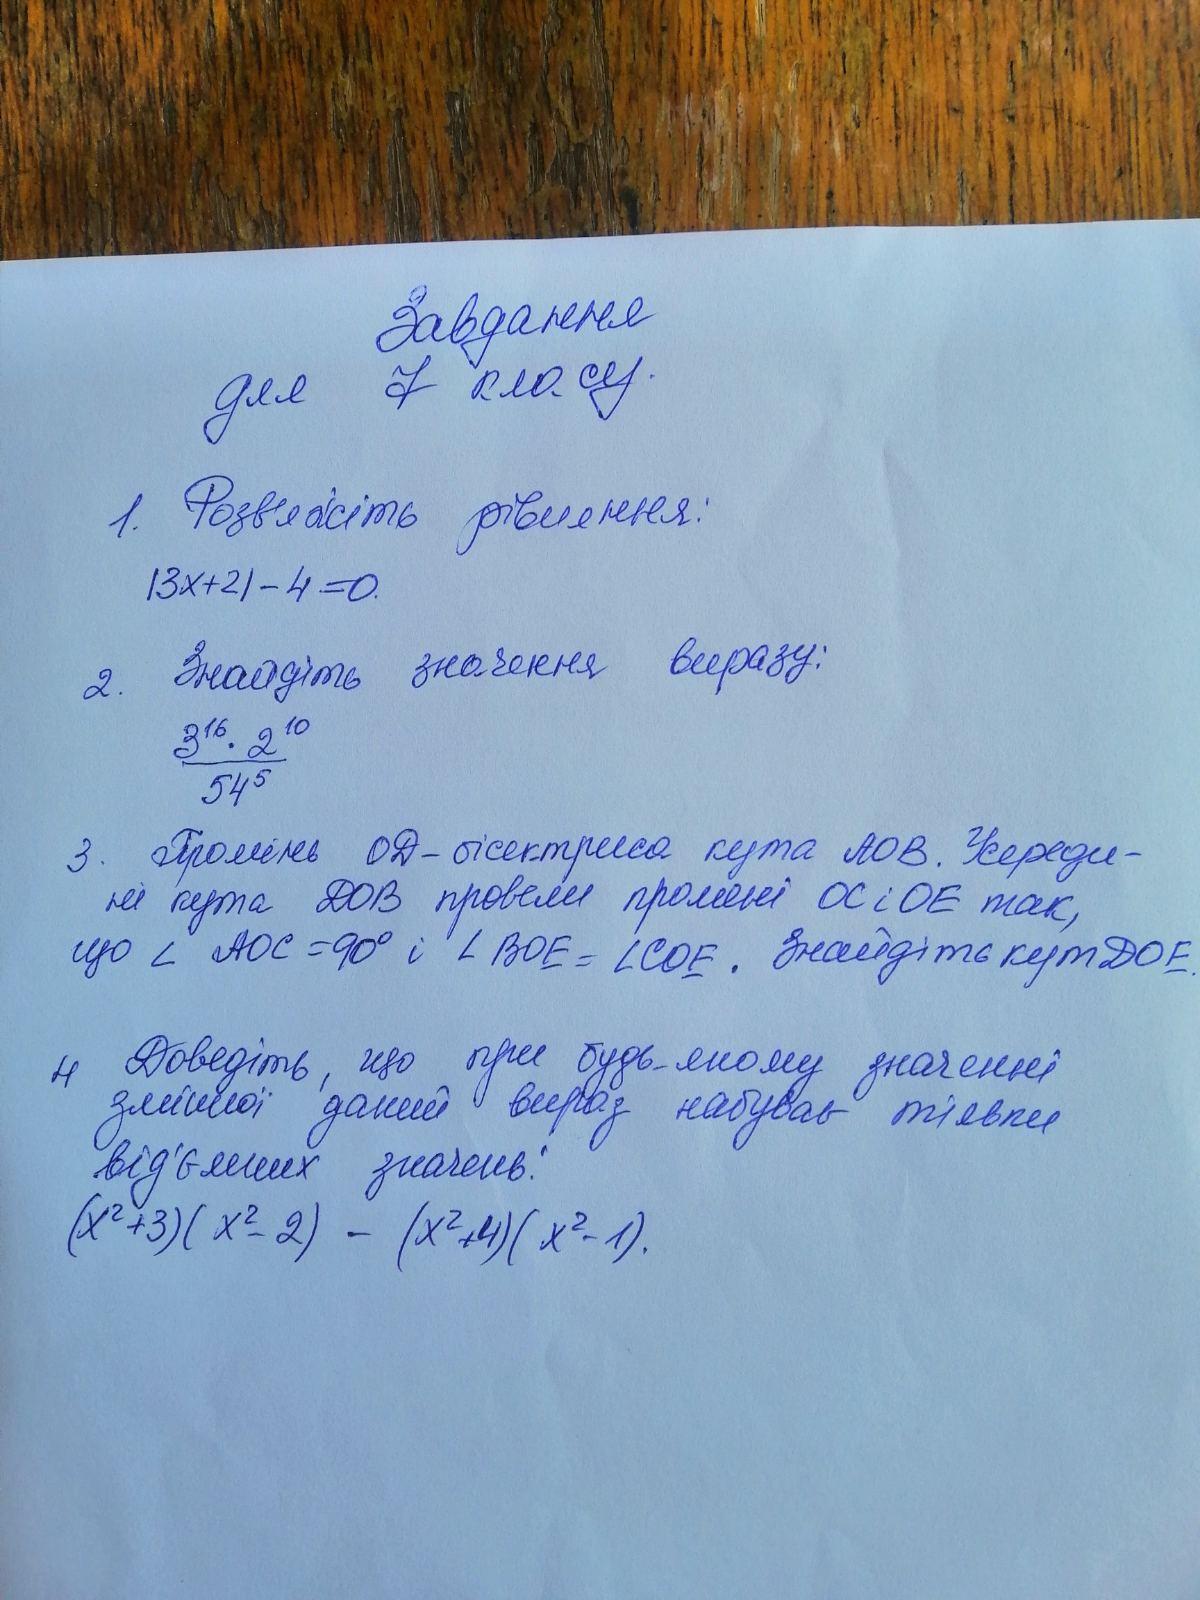 Завдання
для 7 класу.
1. Розв'яжіть рівняння:
|3x+2| - 4 = 0.
2. Знайдіть значення виразу:
3¹⁶ · 2¹⁰
54⁵
3. Промінь ОД - бісектриса кута АОВ. Усереди-
ні кута ДОВ провели промені ОС і ОЕ так,
що ∠ АОС = 90° і ∠ ВОЕ = ∠СОЕ. Знайдіть кут ДОЕ.
4 Доведіть, що при будь-якому значенні
змінної даний вираз набуває тільки
від'ємних значень:
(x²+3)(x²-2) - (x²+4)(x²-1).